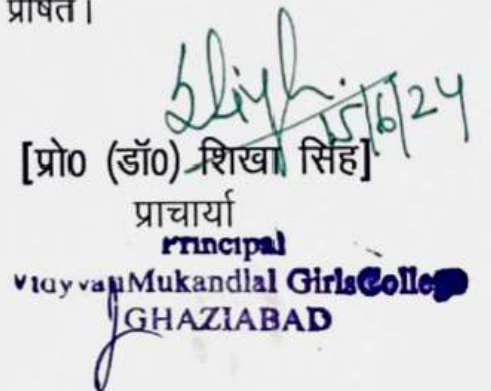 प्रेषित।
15/6/24
[प्रो० (डॉ०) शिखा सिंह]
प्राचार्या
Principal
Mukandlal Girls College
GHAZIABAD